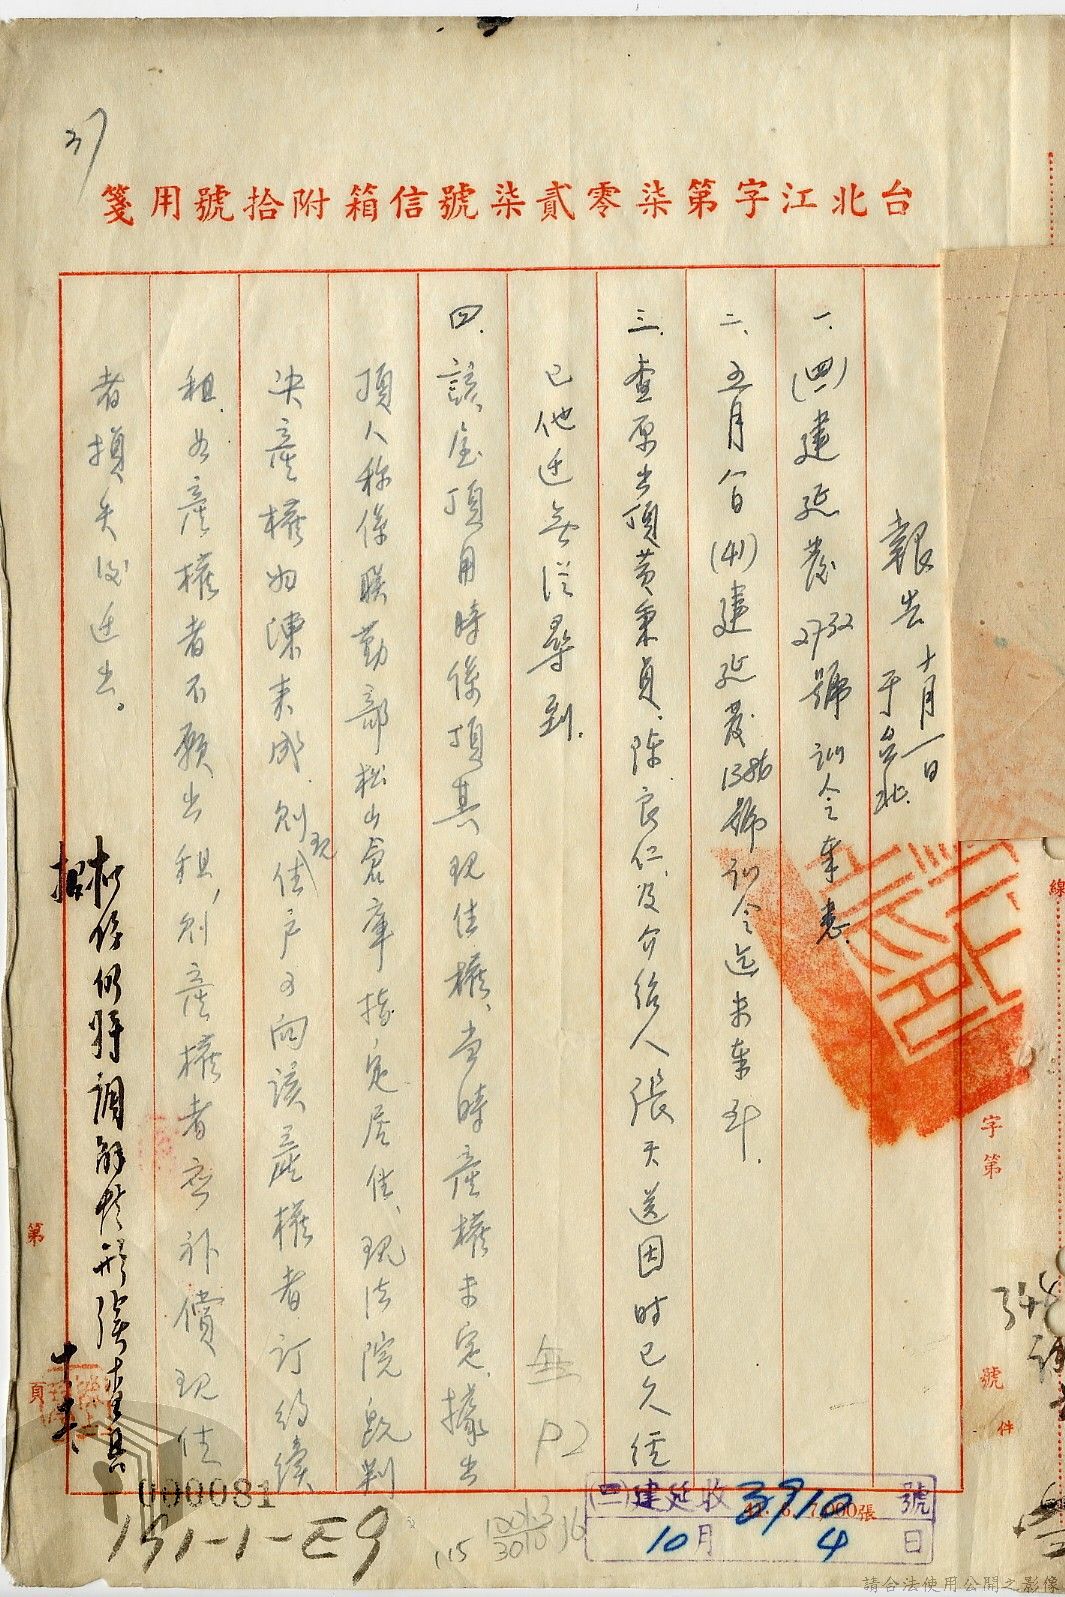 37
台北江字第柒零貳柒號信箱附拾號用箋
報告 十月一日
于台北
一、(四)建延發2732號訓令奉悉.
二、五月八日(41)建延發1386號訓令迄未奉到.
三、查原出頂黃秉貞、陳良仁及介紹人張天送因時已久經
已他迁無從尋到.
四、該屋頂用時係頂其現住權、當時產權未定、據出
頂人称係联勤部松山倉庫指定居住、現法院既判
決產權为陳来成.則現住户可向該產權者訂約續
租.如產權者不願出租,則產權者应补償現住
者損失後迁出。
仍將調解情形
字第
號
件
線
第
頁
無
P2
(四)建延收3910號
10月4日
7,000張
000081
191-1-E9
115
請合法使用公開之影像